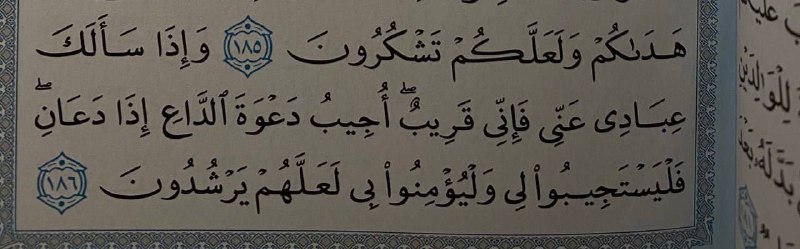 هَدَىٰكُمْ وَلَعَلَّكُمْ تَشْكُرُونَ ١٨٥ وَإِذَا سَأَلَكَ
عِبَادِى عَنِّى فَإِنِّى قَرِيبٌۖ أُجِيبُ دَعْوَةَ ٱلدَّاعِ إِذَا دَعَانِۖ
فَلْيَسْتَجِيبُوا۟ لِى وَلْيُؤْمِنُوا۟ بِى لَعَلَّهُمْ يَرْشُدُونَ ١٨٦